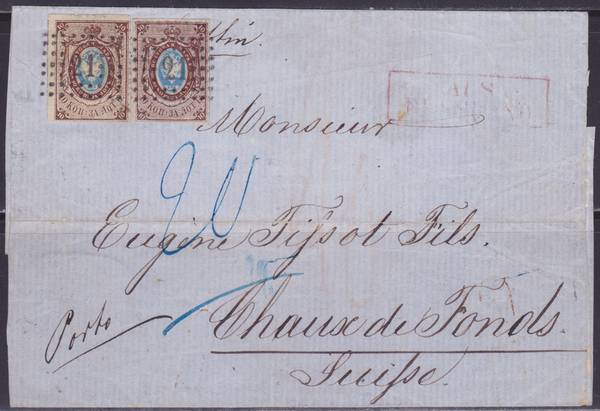 1 2
10 КОП. ЗА ЛОТ 10 КОП. ЗА ЛОТ
AUS
Monsieur
20
Eugène Tissot Fils.
Porto
Chaux de Fonds.
Suisse.